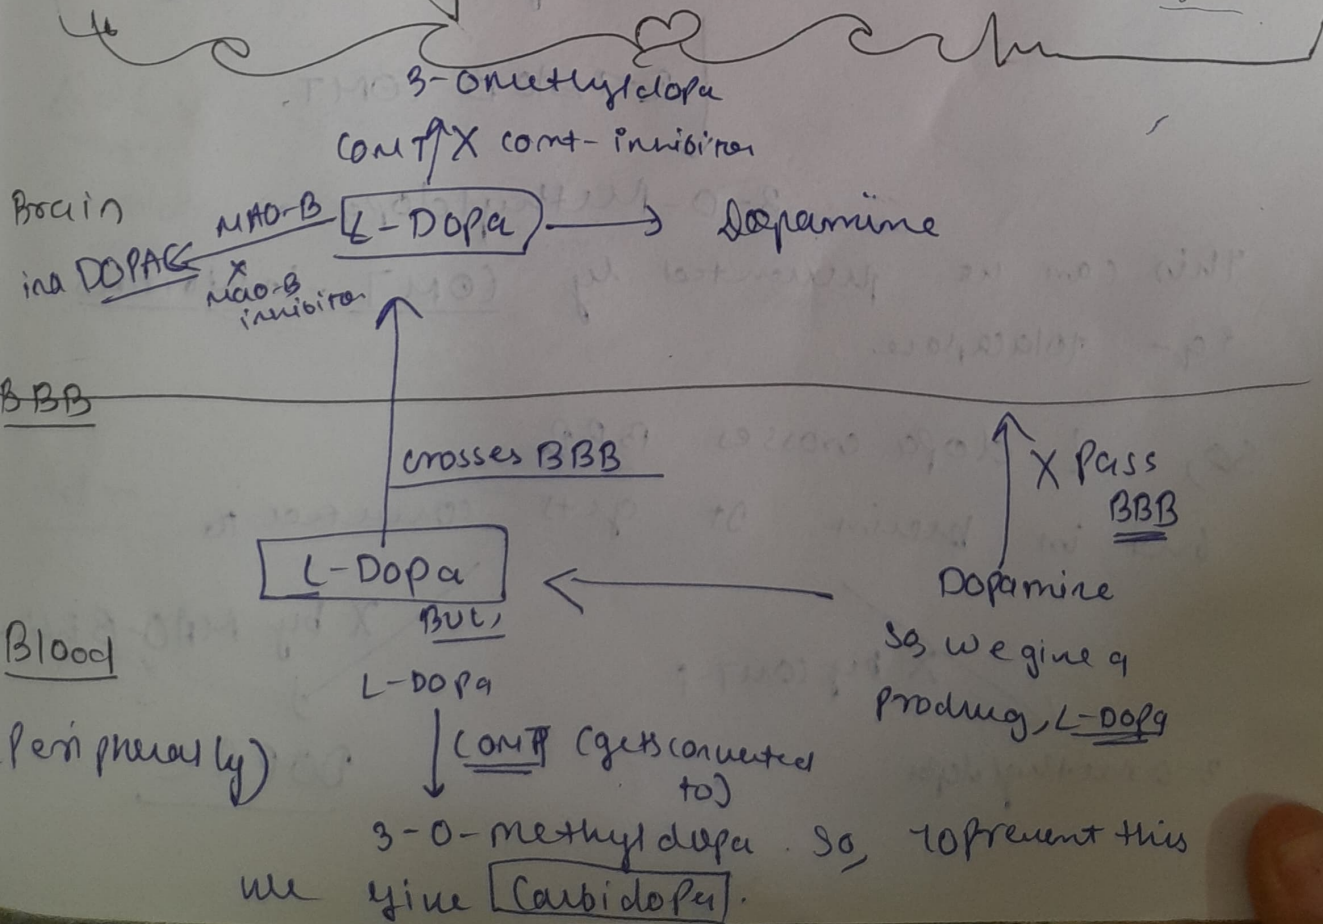 3-Omethyldopa
COMT X comt-inhibitor
Brain MAO-B L-Dopa Dopamine
DOPAC X
MAO-B
inhibitor
BBB
crosses BBB X Pass
BBB
L-Dopa Dopamine
But,
Blood so, we give a
L-Dopa prodrug, L-Dopa
Peripherally) COMT (gets converted
to)
3-O-methyldopa. So, to prevent this
we give Carbidopa.